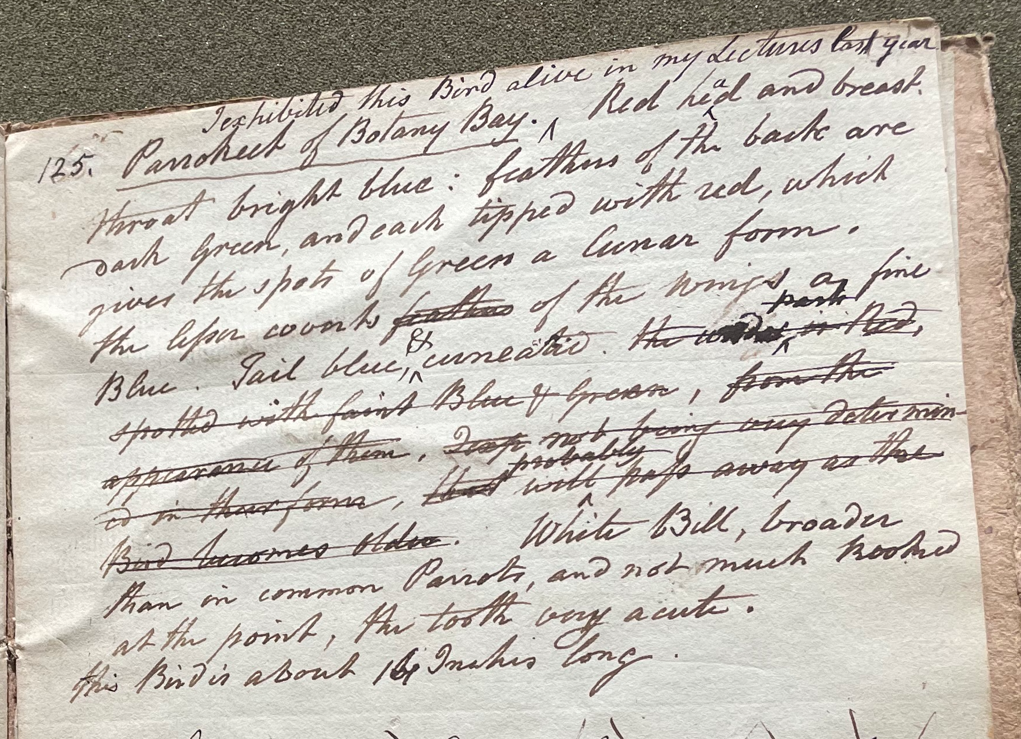 I exhibited this Bird alive in my Lectures last year
125. Parrokeet of Botany Bay. ^ Red head and breast.
throat bright blue: feathers of the back are
dark Green, and each tipped with red, which
gives the spots of Green a Lunar form.
the lesser coverts feathers of the wings a fine
part
Blue. Tail blue, & cuneated. the under in Red,
spotted with faint Blue & Green, from the
appearance of them, not being very determin-
ed in their form, that probably will pass away as the
Bird becomes older. White Bill, broader
than in common Parrots, and not much hooked
at the point, the tooth very acute.
this Bird is about Inches long.